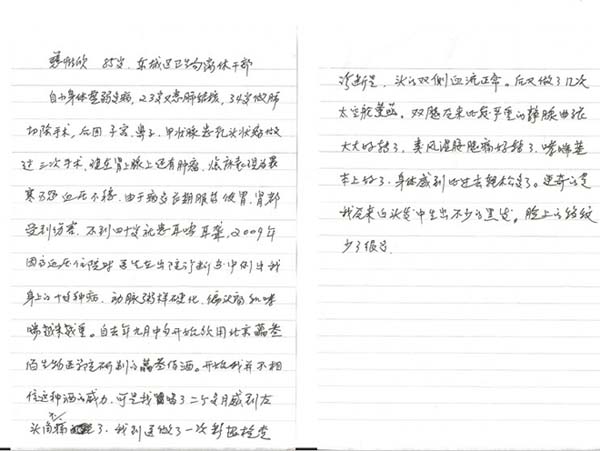 85岁，东城区卫生局离休干部
自小身体整弱多病，23岁又患肺结核，34岁做肺
切除手术，后因子宫、鼻子、甲状腺患乳头状瘤做
过三次手术，现在肾上腺上还有肿瘤，
寒 血压不稳，由于病多长期服药使胃、肾都
受到伤害，不到四十岁就患耳鸣耳聋，2009年
因高血压住院时医生在出院诊断书中例出我
身上的十 种病，动脉粥样硬化、偏头痛和哮
喘越来越重。自去年九月中旬开始饮用北京
生物医药 研制的 酒。开始我并不相
信这种酒的威力，可是我喝了二个多月感到左
头 不 痛 了，我到 做了一次彩超检查
诊断是，头的双侧血流正常。后又做了几次
太空舱 。双腿原来比较严重的静脉曲张
大大好转了，类风湿 病好转了，哮喘基
本上好了，身体感到比过去轻松多了。更奇的是
我原来白头发中生出不少的黑发。脸上的皱纹
少了很多。